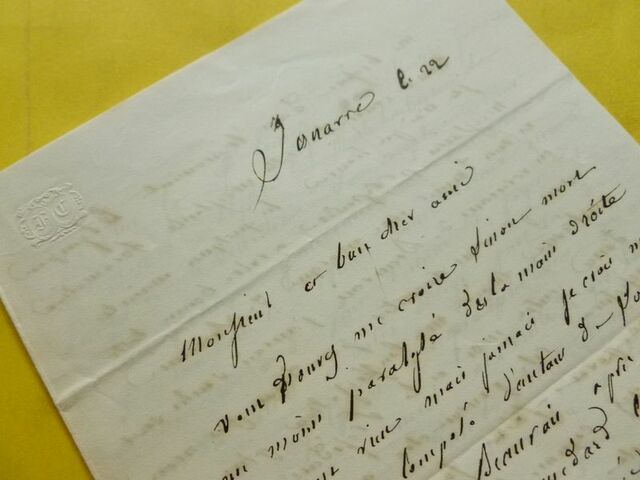 Jouarre le 22
Monsieur et bien cher ami
vous pouvez me croire sinon mort
au moins paralysé de la main droite
rien mais jamais je crois
composé d'autan de
Beauvais après